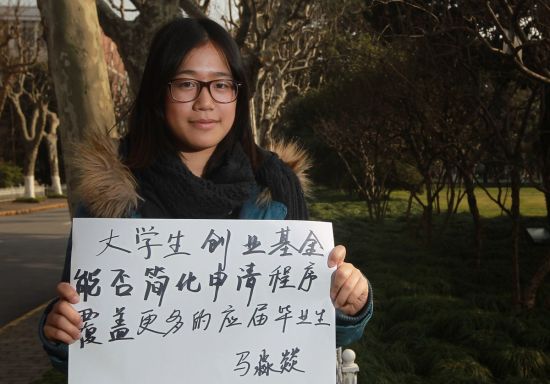 大学生创业基金
能否简化申请程序
覆盖更多的应届毕业生
马淼燚